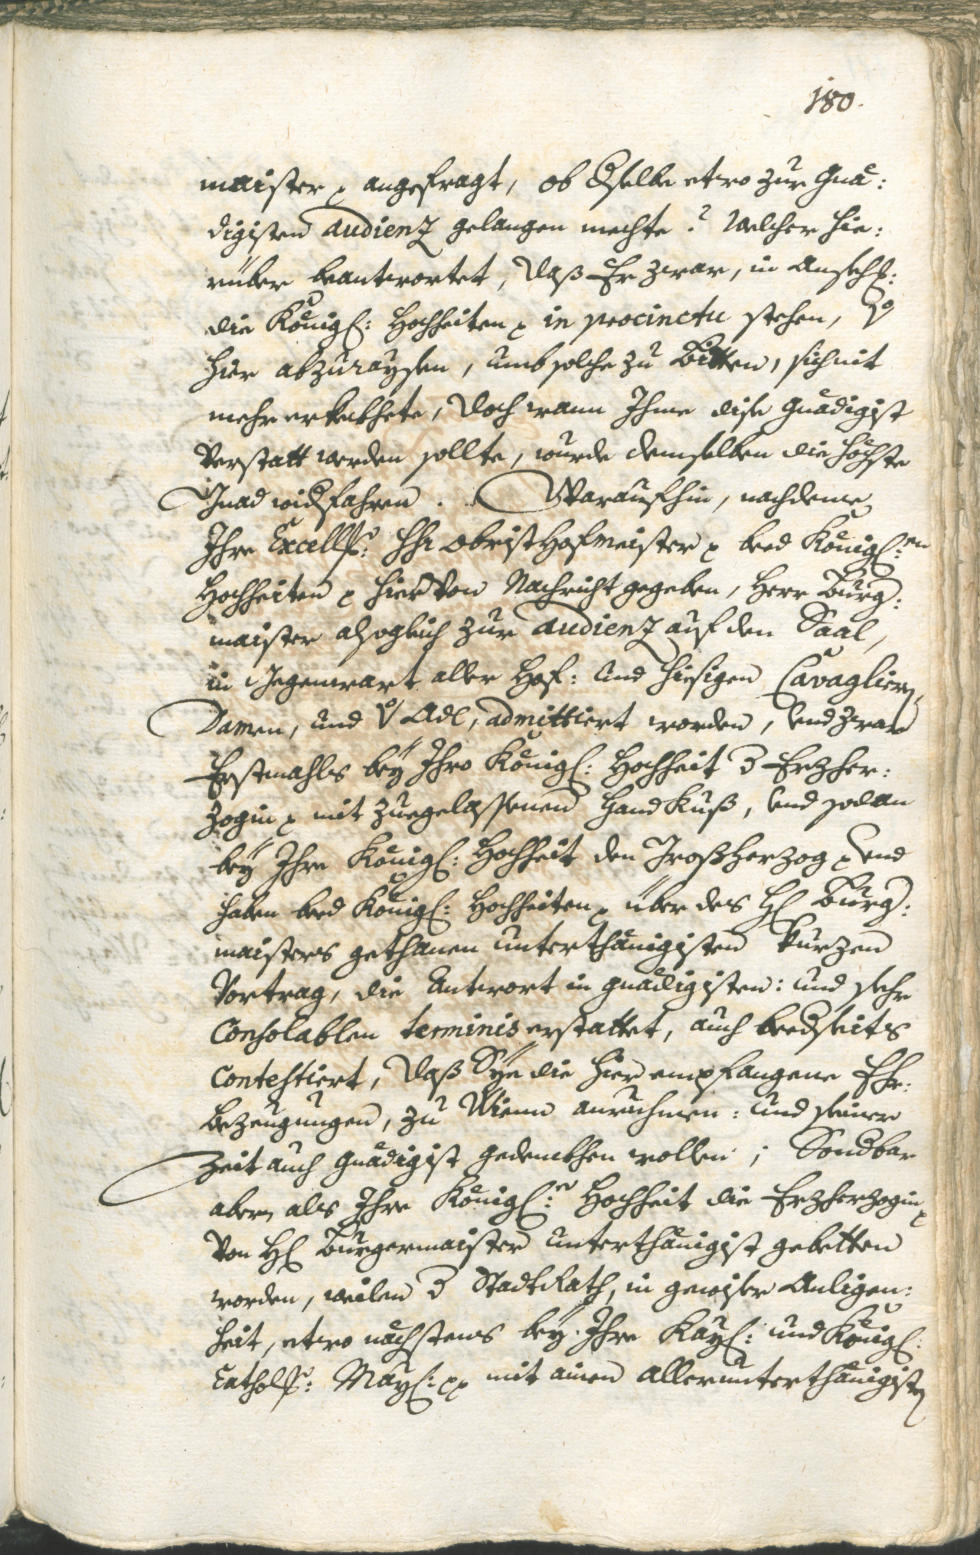 180.
maister ꝛc angefragt, ob dselbe etwo zur Gnä:
digisten Audienz gelangen mechte? Welcher hie:
rüber beantwortet, daß Er zwar, in Ansech:
die Königl: Hochheiten ꝛc in procinctu stehen, v
hier abzuraysen, umb solche zu Bitten, sich nit
mehr erkekhete, doch wann Ihme dise Gnädigist
verstatt werden sollte, wurde demselben die höchste
Gnad widfahren. Waraufhin, nachdeme
Ihre Excell: Hr Obrist Hofmeister ꝛc beed Königl:en
Hochheiten ꝛc hievon Nachricht gegeben, Herr Burg:
maister alsogleich zur Audienz auf den Saal,
in Gegenwart aller Hof: und hiesigen Cavaglier,
Damen, und v Adl, admittiert worden, und zwar
Erstmahls bey Ihro Königl: Hochheit d Erzher:
zogin ꝛc mit zuegelassenen Hand Kuß, und sodan
bey Ihre Königl: Hochheit den Großherzog ꝛc und
haben beed Königl: Hochheiten ꝛc über des H: Burg:
maisters gethanen unterthänigisten kurzen
Vortrag, die Antwort in gnädigisten: und sehr
Consolablen terminis erstattet, auch beedseits
Contestiert, daß Sye die hier empfangene Ehr:
bezeugungen, zu Wienn anruehmen: und seiner
Zeit auch Gnädigist gedenkhen wollen; Sondbar
aber, als Ihre Königl: Hochheit die Erzherzogin ꝛc
von H: Burgermaister unterthänigist gebetten
worden, weilen d StadtRath, in gewiser Anligen:
heit, etwo nächstens bey Ihre Kayl: und Königl:
Cathol: May: ꝛcꝛc mit ainen allerunterthänigist